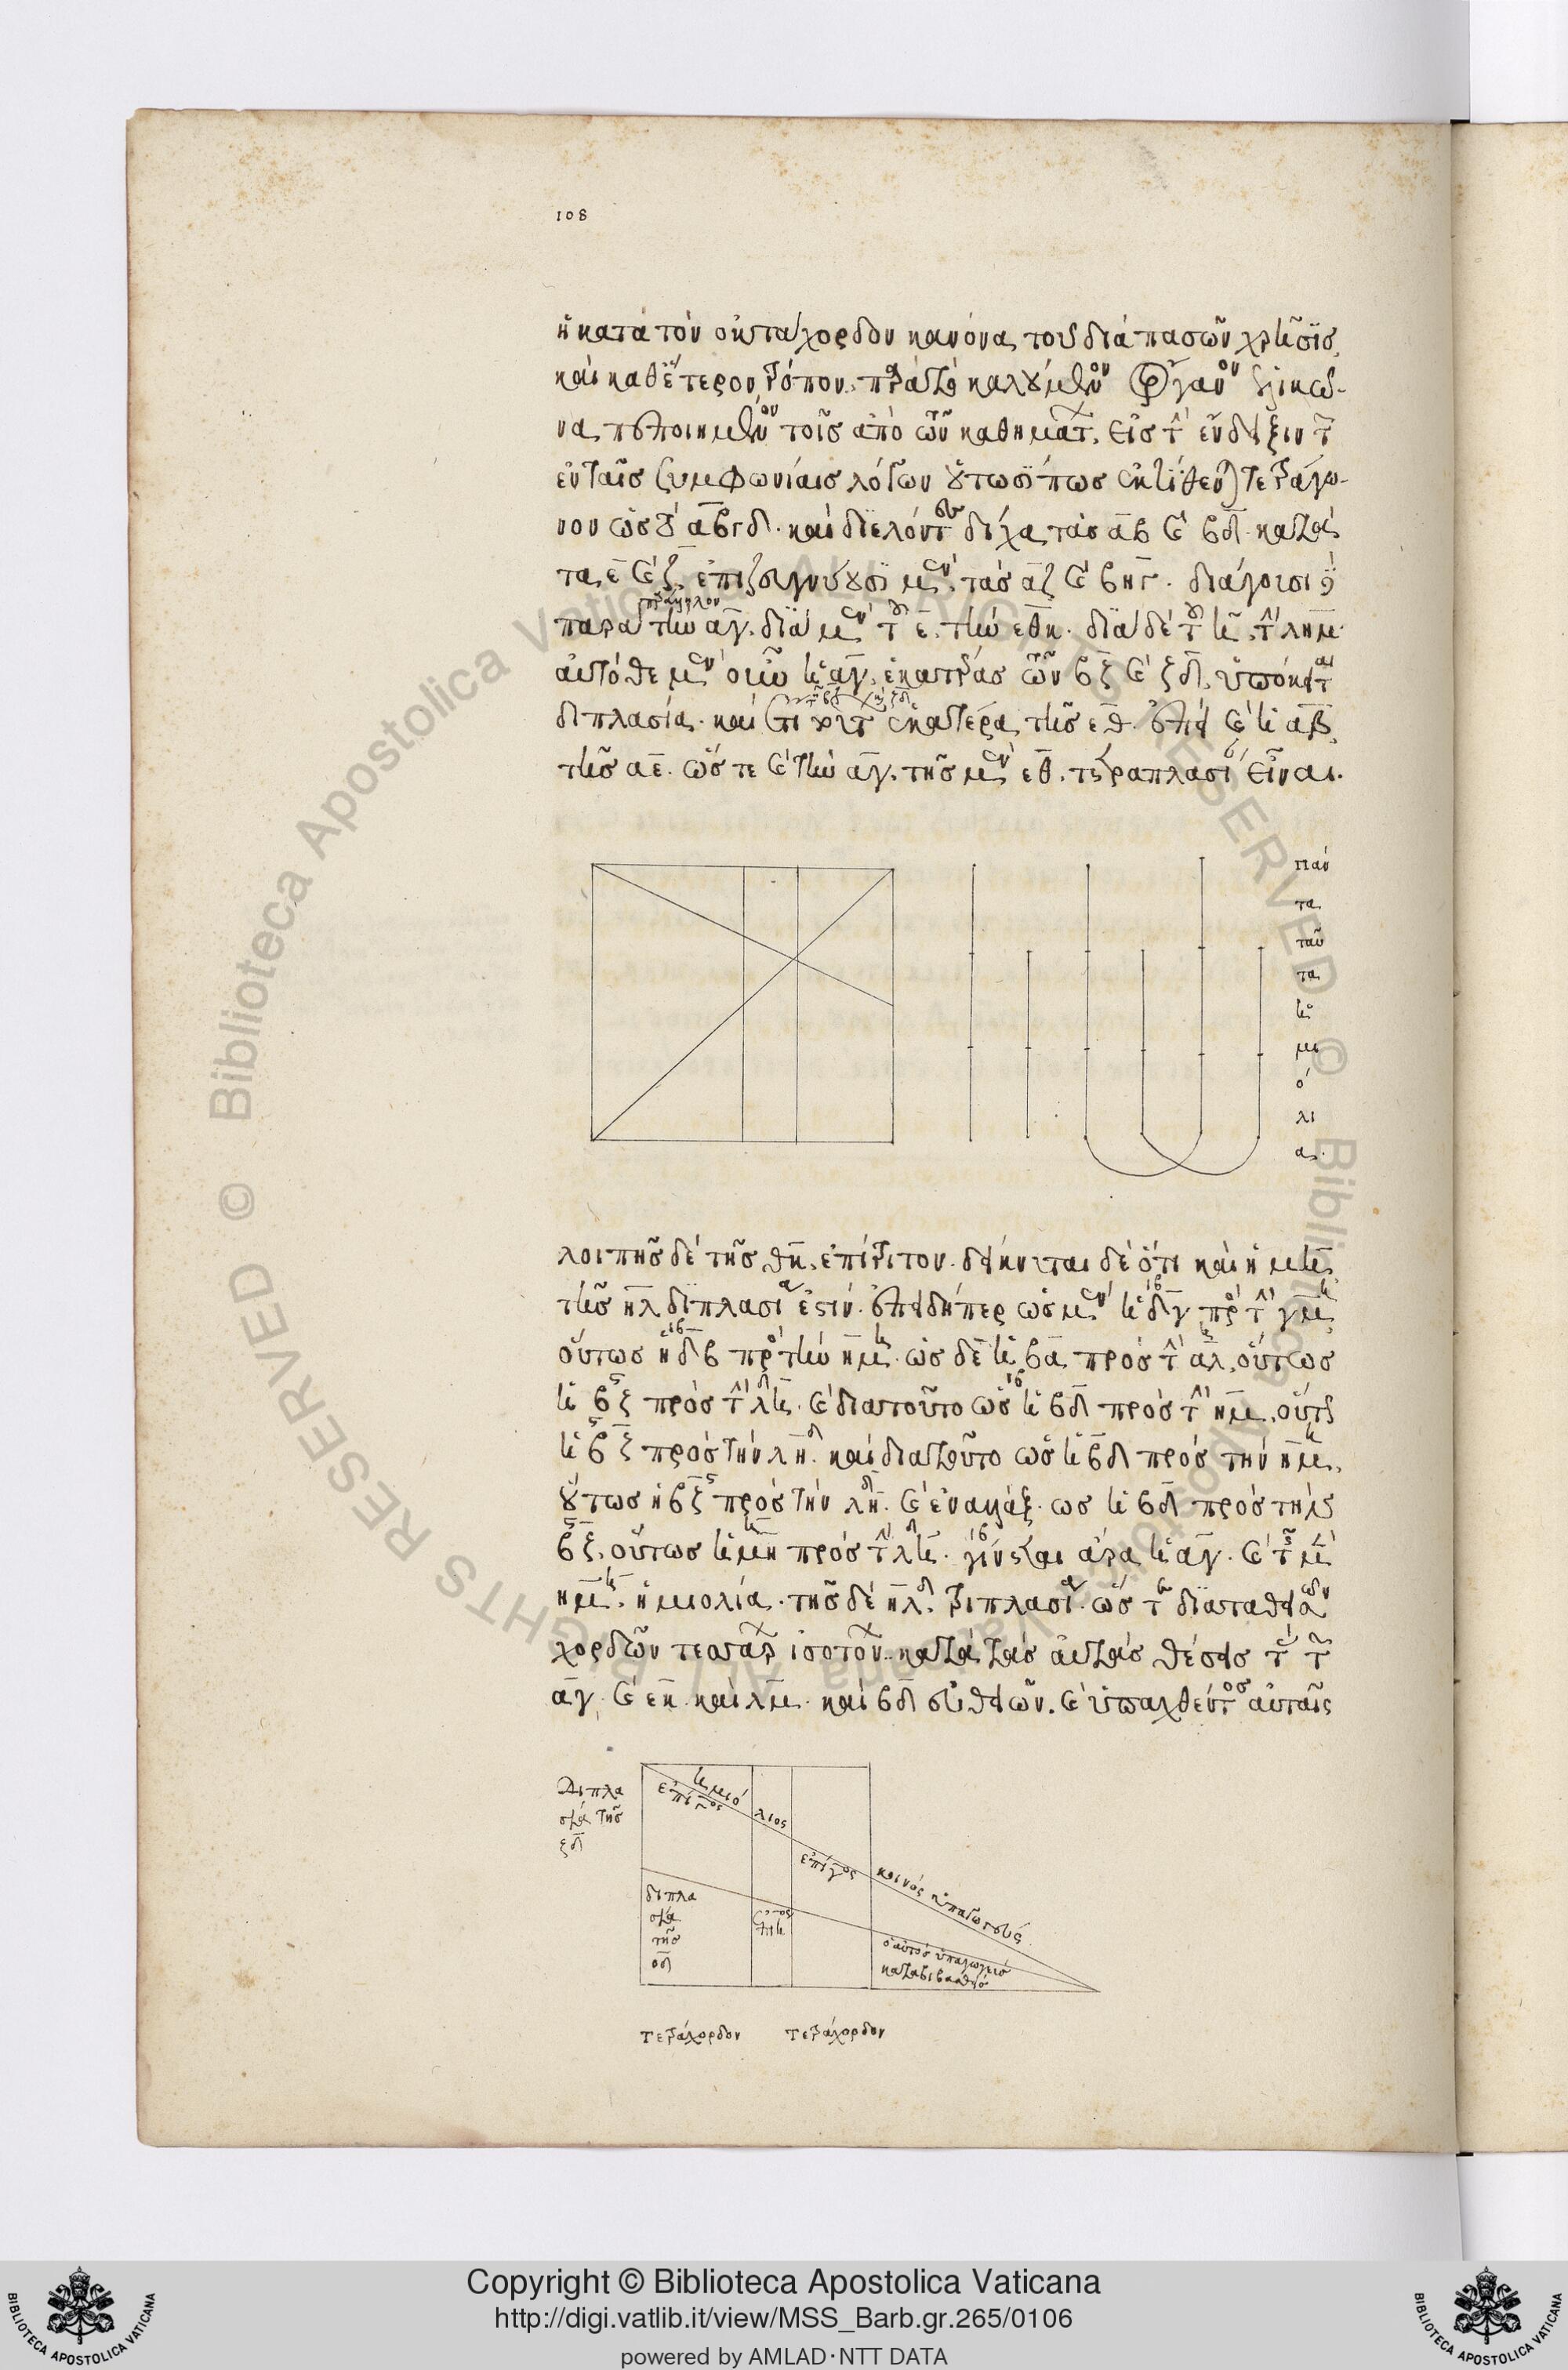 108
ἡ κατὰ τὸν ὀκτάχορδον κανόνα τοῦ διὰ πασῶν χρῆσϊς,
καὶ καθ' ἕτερον τρόπον παρὰ τὸ καλούμενον ὄργανον ἑλικῶ-
να πεποιημένον τοῖς ἀπὸ τῶν μαθημάτων εἰς τὴν ἔνδειξιν τῶν
ἐν ταῖς συμφωνίαις λόγων οὕτωσί πως ἐκτίθενται τετράγω-
νον ὡς τὸ αβγδ. καὶ διελόντες δίχα τὰς αβ καὶ βδ κατὰ
τὰ ε καὶ ζ, ἐπιζευγνύουσϊ μὲν τὰς αζ καὶ βηγ. διάγουσι δὲ
παράλληλον
παρὰ τὴν αγ. διὰ μὲν τοῦ ε, τὴν εθκ. διὰ δὲ τοῦ η, τὴν λημ.
αὐτόθε μὲν οὖν ἡ αγ, ἑκατέρας τῶν βζ καὶ ζδ, ὑπόκειται
διπλασία. καὶ ἑκατέρα τῆς εθ. ἐπεὶ καὶ ἡ αβ
τῆς αε. ὥστε καὶ τὴν αγ. τῆς μὲν εθ. τετραπλασίαν εἶναι.
πάν
τα
ταῦ
τα
ἡ
μι
ό
λι
α.
λοιπῆς δὲ τῆς θκ, ἐπίτριτον. δείκνυται δὲ ὅτι καὶ ἡ μη
τῆς ηλ διπλασία ἐστίν. ἐπειδήπερ ὡς μὲν ἡ δγ πρὸς τὴν γμ
οὕτως ἡ δβ πρὸς τὴν ημ. ὡς δὲ ἡ βα πρὸς τὴν αλ, οὕτως
ἡ βζ πρὸς τὴν λη. καὶ διὰ τοῦτο ὡς ἡ βδ πρὸς τὴν ημ, οὕτως
ἡ βζ πρὸς τὴν λη. καὶ διὰ τοῦτο ὡς ἡ βδ πρὸς τὴν ημ,
οὕτως ἡ βζ πρὸς τὴν λη. καὶ ἐναλλάξ. ὡς ἡ βδ πρὸς τὴν
βζ, οὕτως ἡ μη πρὸς τὴν λη. γίνεται ἄρα ἡ αγ. καὶ τῆς μὲν
ημ, ἡμιολία. τῆς δὲ ηλ, τριπλασία. ὥστε διαταθεισῶν
χορδῶν τεσσάρων ἰσοτόνων κατὰ τὰς αὐτὰς θέσεις τῶν
αγ. καὶ εκ. καὶ λμ. καὶ βδ εὐθειῶν. καὶ ὑπαχθέντος αὐταῖς
διπλα
σία τῆς
ζδ
ἡμιό
λιος
ἐπίγος
κοινὸς ὑπαγωγεύς
διπλα
σία
τῆς
ὁ αὐτὸς ὑπαγωγεὺς
καταβιβασθείς
τετράχορδον τετράχορδον
Copyright © Biblioteca Apostolica Vaticana
http://digi.vatlib.it/view/MSS_Barb.gr.265/0106
powered by AMLAD·NTT DATA
BIBLIOTECA APOSTOLICA VATICANA
BIBLIOTECA APOSTOLICA VATICANA
© Biblioteca Apostolica Vaticana ALL RIGHTS RESERVED